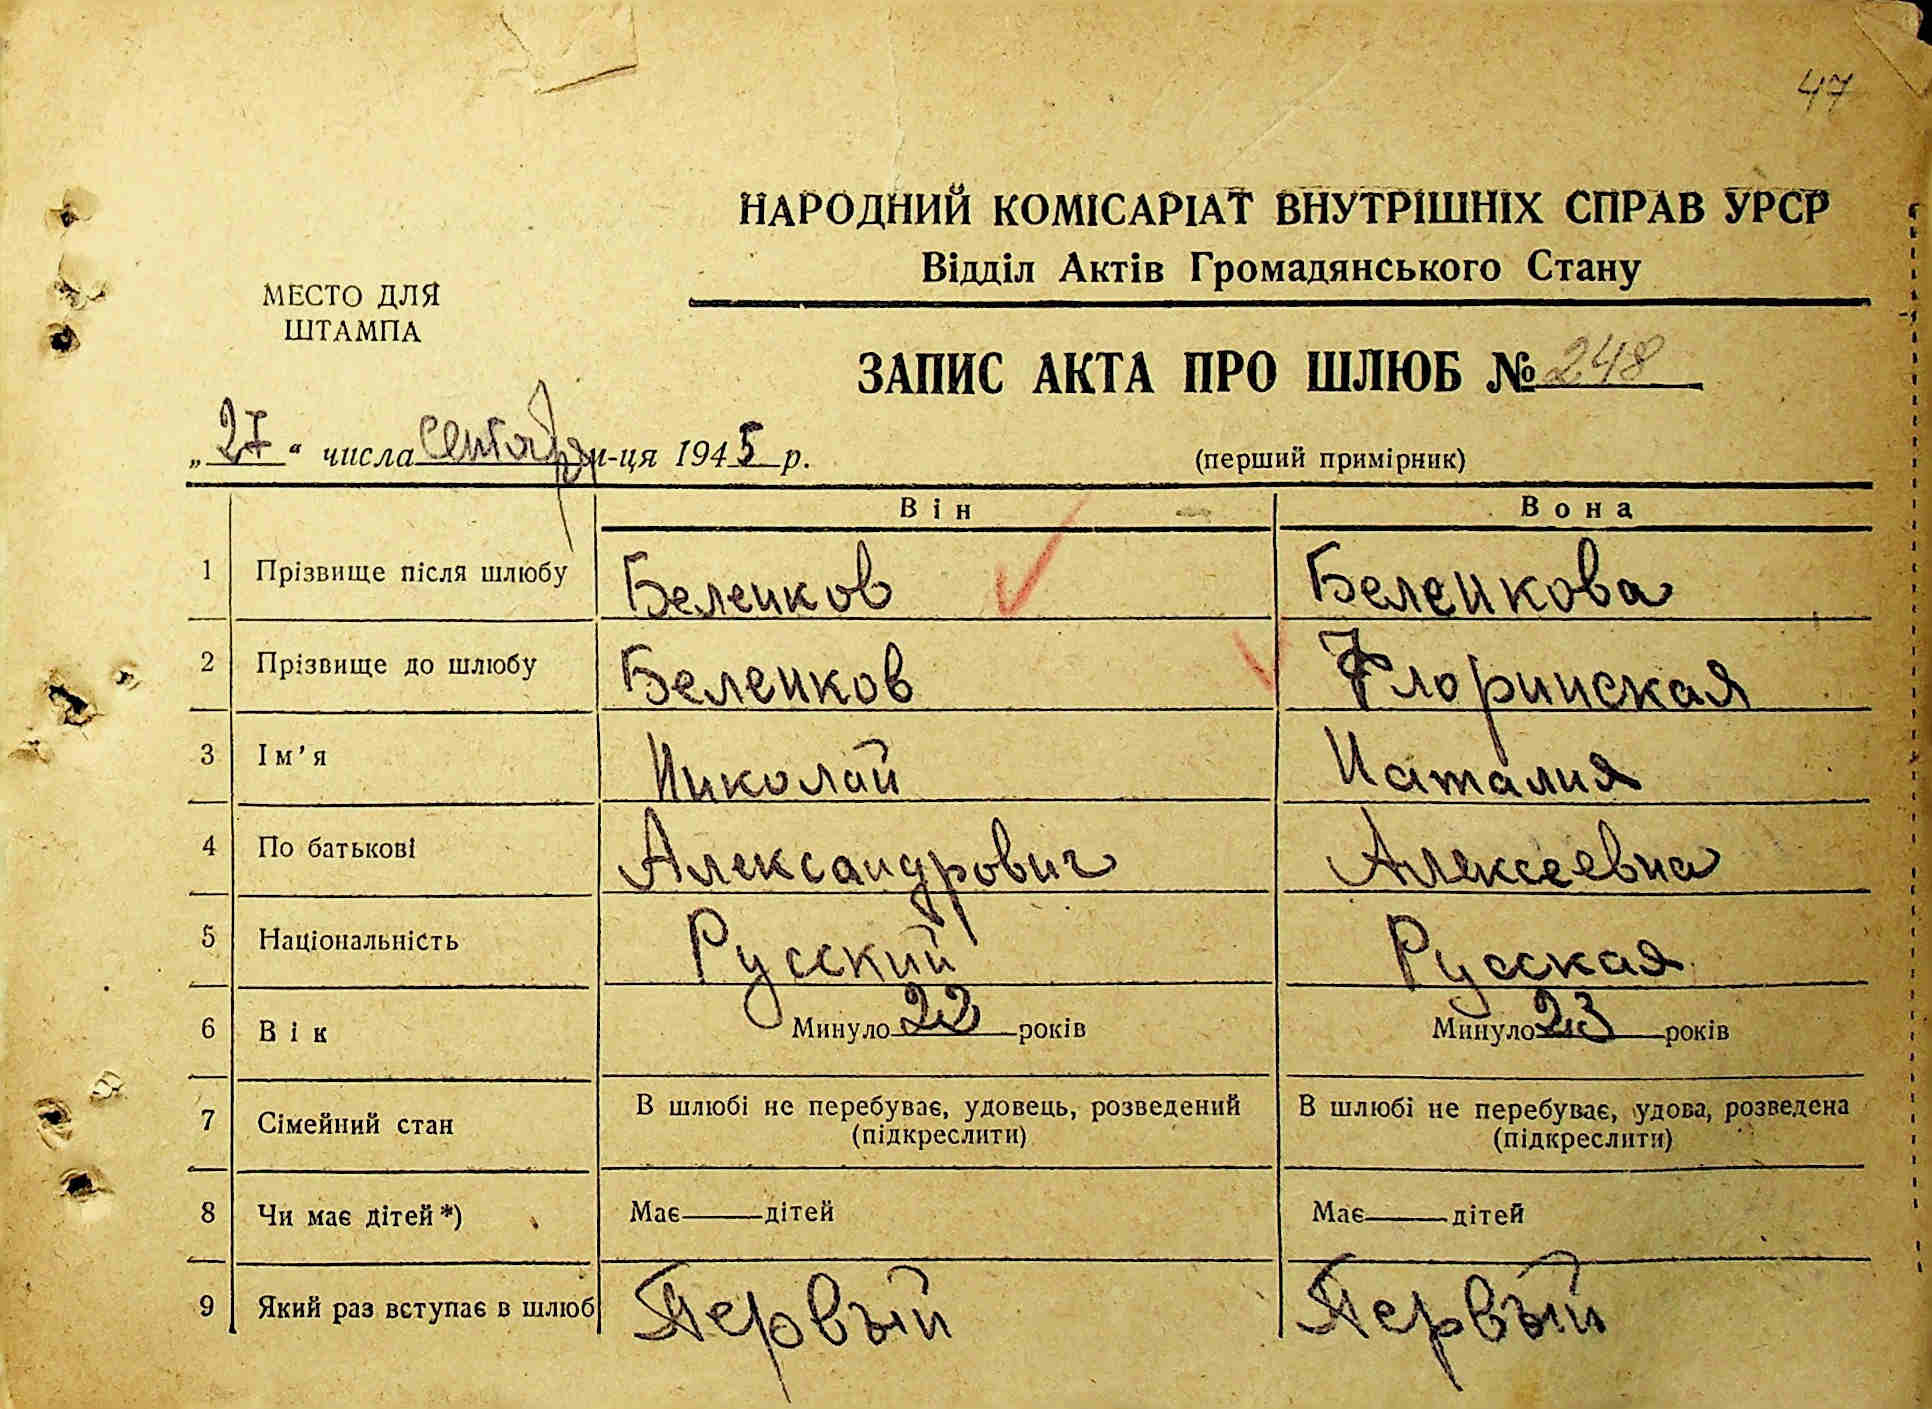 47
НАРОДНИЙ КОМІСАРІАТ ВНУТРІШНІХ СПРАВ УРСР
Відділ Актів Громадянського Стану
МЕСТО ДЛЯ
ШТАМПА
ЗАПИС АКТА ПРО ШЛЮБ № 248
„27“ числа сентября м-ця 1945 р.
(перший примірник)
Він Вона
1 Прізвище після шлюбу Беленков Беленкова
2 Прізвище до шлюбу Беленков Флоринская
3 Ім’я Николай Наталия
4 По батькові Александрович Алексеевна
5 Національність Русский Русская
6 Вік Минуло 22 років Минуло 23 років
7 Сімейний стан В шлюбі не перебуває, удовець, розведений (підкреслити) В шлюбі не перебуває, удова, розведена (підкреслити)
8 Чи має дітей*) Має — дітей Має — дітей
9 Який раз вступає в шлюб Первый Первый